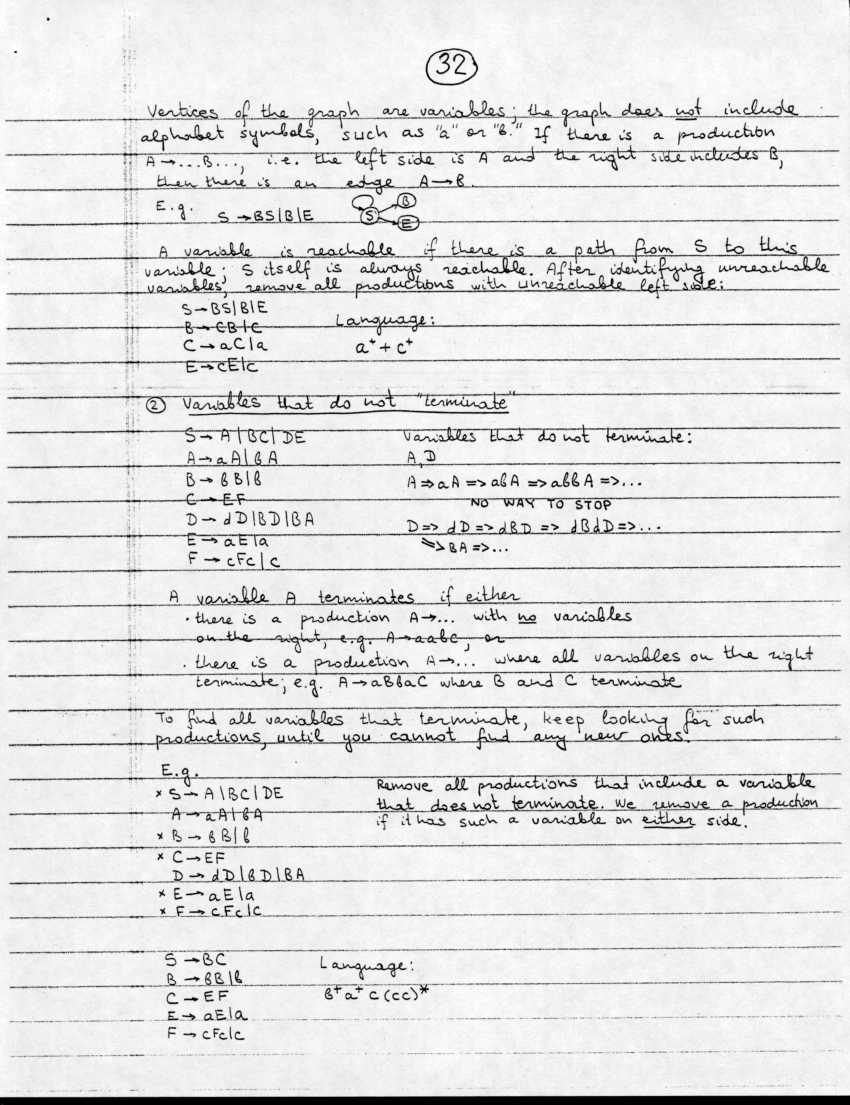 32
Vertices of the graph are variables; the graph does not include
alphabet symbols, such as "a" or "b." If there is a production
A→...B..., i.e. the left side is A and the right side includes B,
then there is an edge A→B.
E.g. S→BS|B|E
S
B
E
A variable is reachable if there is a path from S to this
variable; S itself is always reachable. After identifying unreachable
variables, remove all productions with unreachable left side:
S→BS|B|E
B→CB|C
C→aC|a
E→cE|c
Language:
a⁺+c⁺
② Variables that do not "terminate"
S→A|BC|DE
A→aA|bA
B→bB|b
C→EF
D→dD|BD|BA
E→aE|a
F→cFc|c
Variables that do not terminate:
A,D
A=>aA=>abA=>abbA=>...
NO WAY TO STOP
D=>dD=>dBD=>dBdD=>...
=>BA=>...
A variable A terminates if either
· there is a production A→... with no variables
on the right, e.g. A→aabc, or
· there is a production A→... where all variables on the right
terminate; e.g. A→aBbaC where B and C terminate
To find all variables that terminate, keep looking for such
productions, until you cannot find any new ones.
E.g.
× S→A|BC|DE
A→aA|bA
× B→bB|b
× C→EF
D→dD|BD|BA
× E→aE|a
× F→cFc|c
Remove all productions that include a variable
that does not terminate. We remove a production
if it has such a variable on either side.
S→BC
B→bB|b
C→EF
E→aE|a
F→cFc|c
Language:
b⁺a⁺c(cc)*